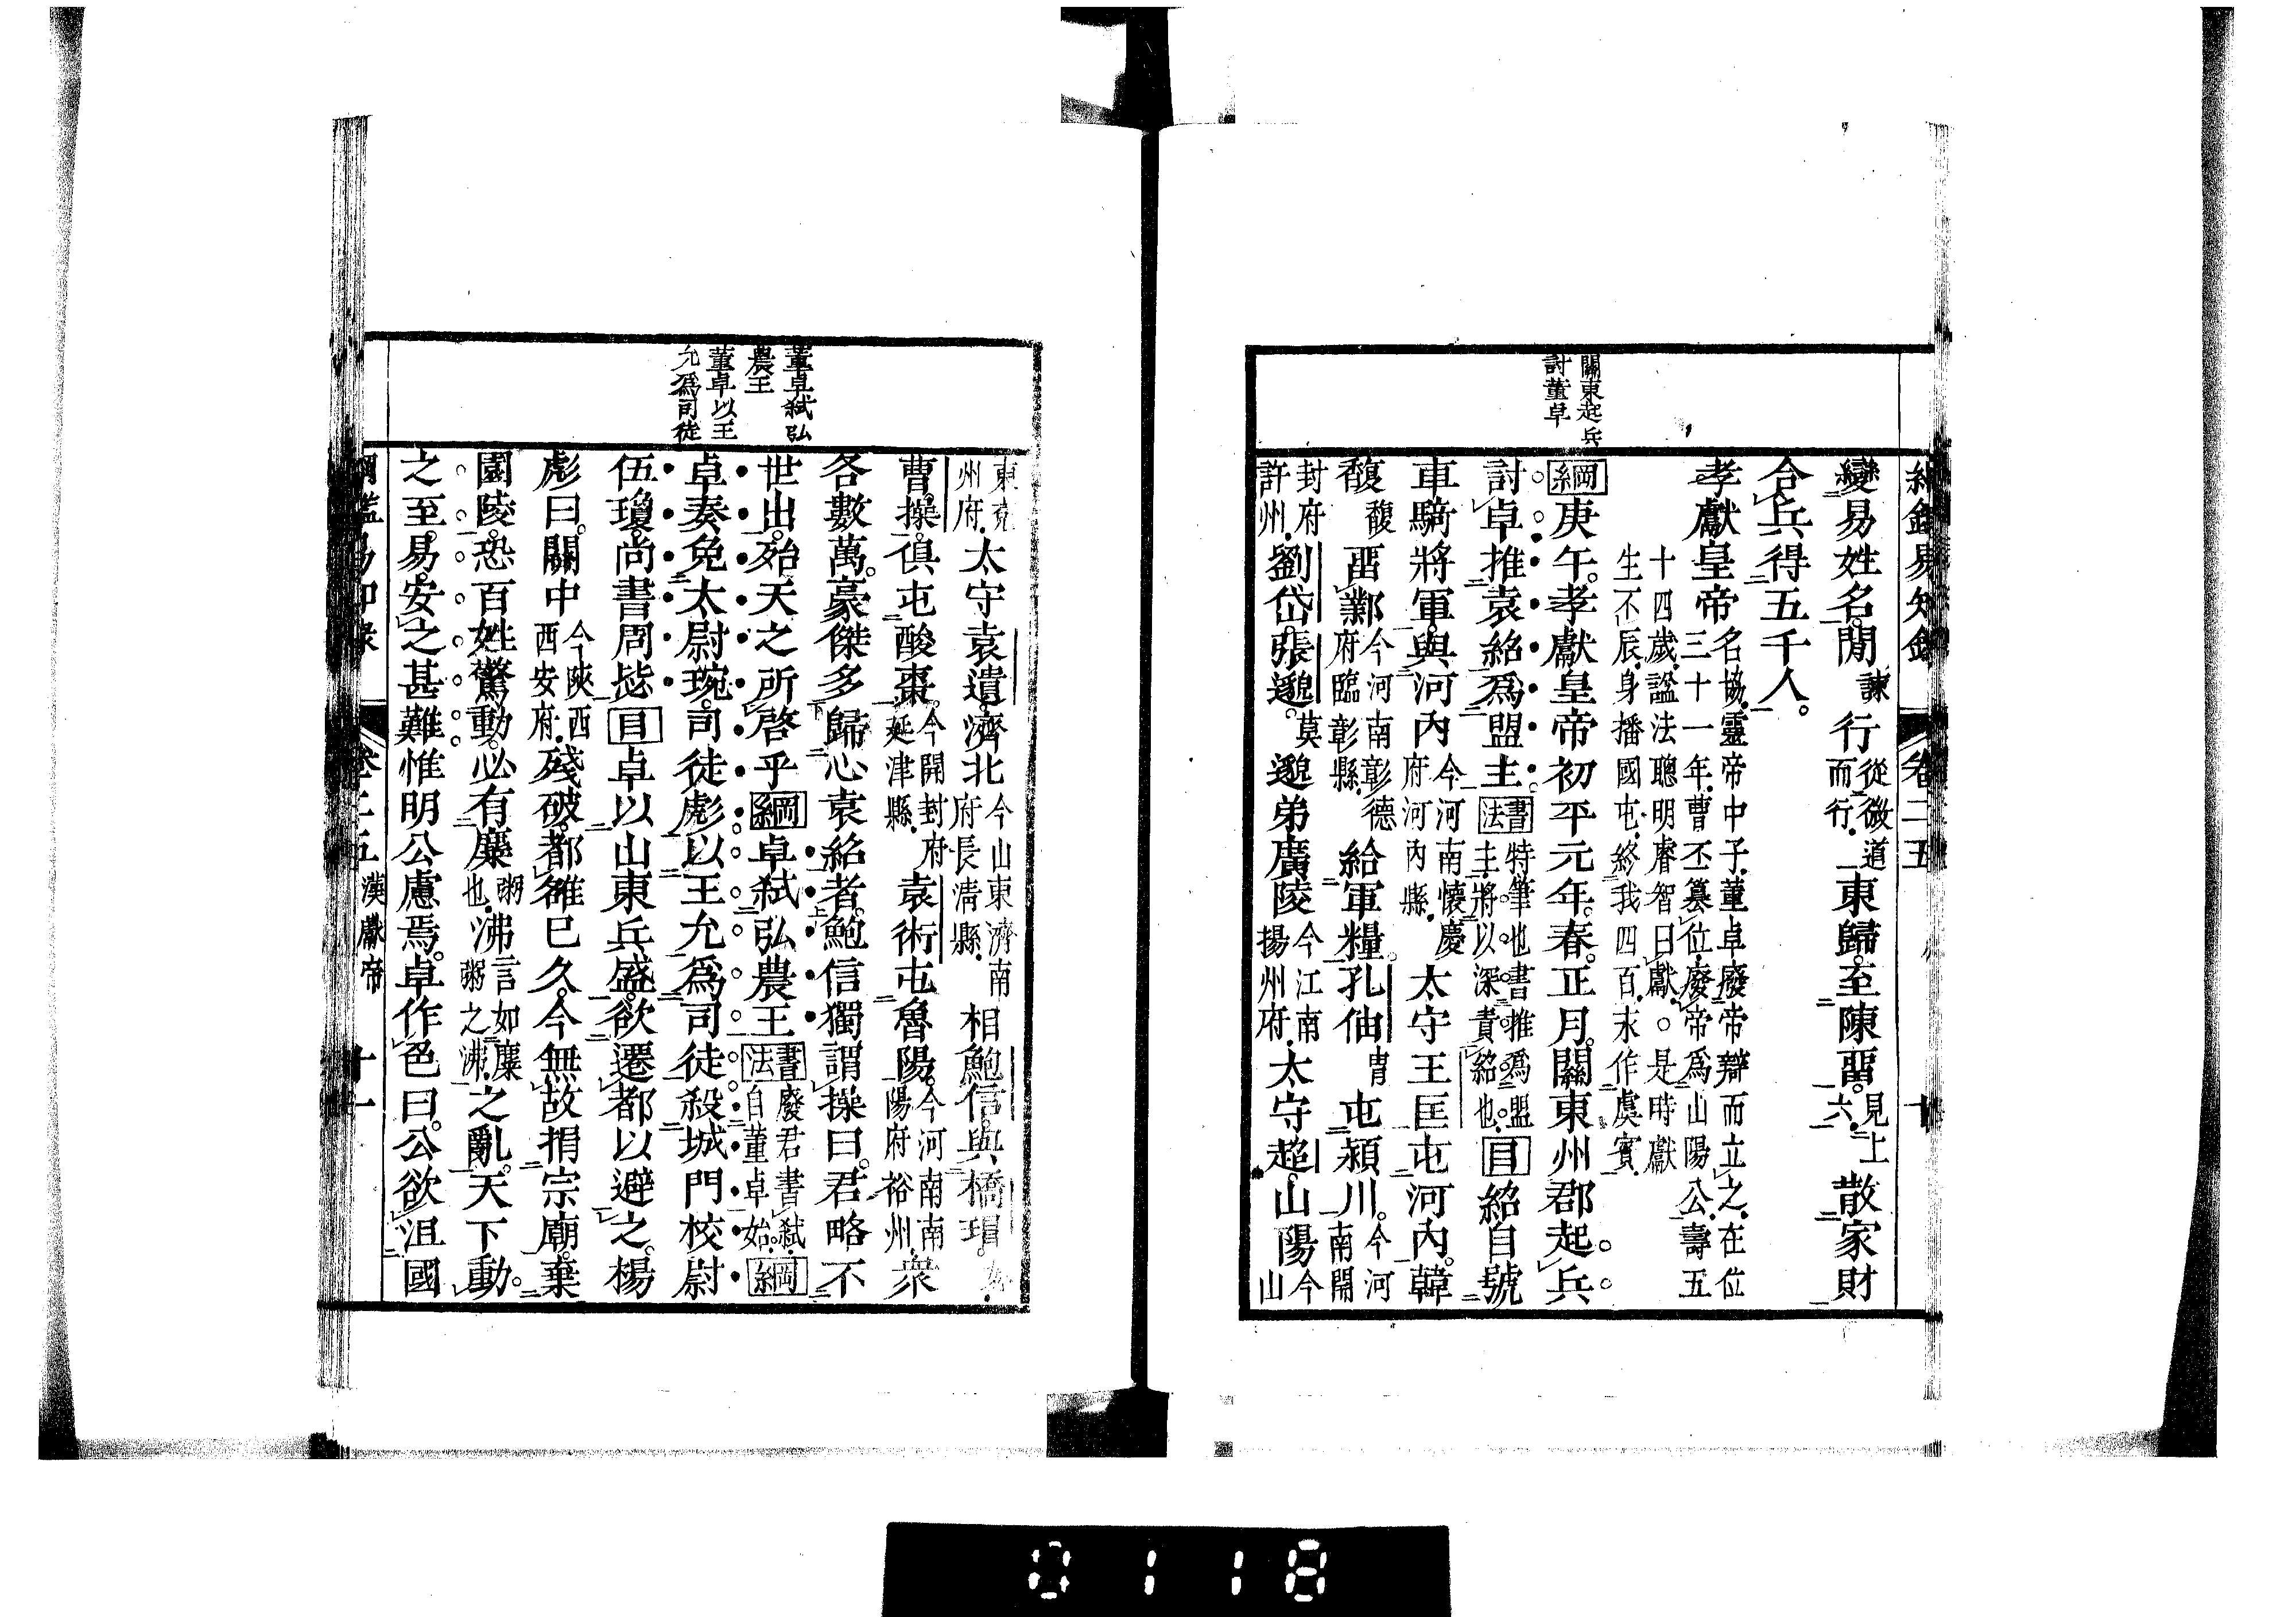 綱鑑易知錄 卷二五 十
關東起兵
討董卓
變易姓名。閒諫行從微道而行。東歸。至陳畱。見上六。散家財
合兵得五千人。
孝獻皇帝名協。靈帝中子。董卓廢帝辯而立之。在位三十一年。曹丕篡位。廢帝爲山陽公。壽五
十四歲。諡法聰明睿智曰獻。○是時獻生不辰。身播國屯。終我四百。永作虞賓。
綱庚午。孝獻皇帝初平元年。春。正月。關東州郡起兵
討卓。推袁紹爲盟主。書法特筆也。書推爲盟主。將以深責紹也。目紹自號
車騎將軍。與河內今河南懷慶府河內縣。太守王匡屯河內。韓
馥馥畱鄴今河南彰德府臨彰縣。給軍糧。孔伷冑屯潁川。今河南開
封府許州。劉岱。張邈。莫邈弟廣陵今江南揚州府。太守超。山陽今山
東兗州府。太守袁遺。濟北今山東濟南府長清縣。相鮑信。與橋瑁。
曹操。俱屯酸棗。今開封府延津縣。袁術屯魯陽。今河南南陽府裕州。衆
各數萬。豪傑多歸心袁紹者。鮑信獨謂操曰。君略不
世出。殆天之所啓乎。綱卓弒弘農王。書法廢君書弒。自董卓始。綱
卓奏免太尉琬。司徒彪。以王允爲司徒。殺城門校尉
伍瓊。尚書周毖。目卓以山東兵盛。欲遷都以避之。楊
彪曰。關中今陝西西安府。殘破。都雒已久。今無故捐宗廟。棄
園陵。恐百姓驚動。必有糜粥也。沸言如糜粥之沸。之亂。天下動。
之至易。安之甚難。惟明公慮焉。卓作色曰。公欲沮國
董卓弒弘
農王
董卓以王
允爲司徒
綱鑑易知錄 卷二五 漢獻帝 十一
0118